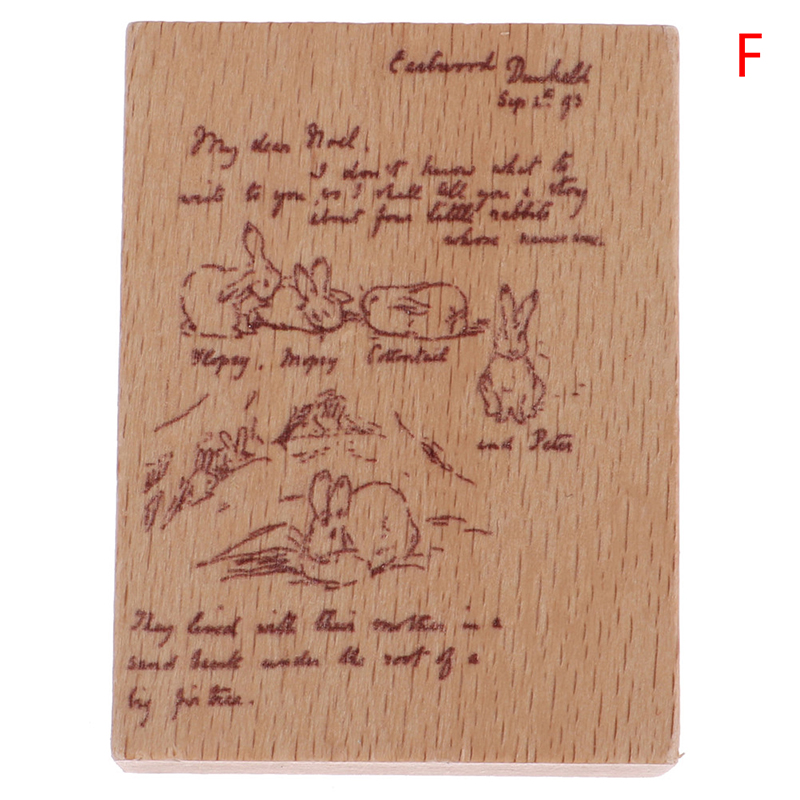 F
Eastwood Dunkeld
Sep 4th 93
My dear Noel,
I don't know what to
write to you, so I shall tell you a story
about four little rabbits
whose names were
Flopsy, Mopsy Cottontail
and Peter
They lived with their mother in a
sand bank under the root of a
big fir tree.